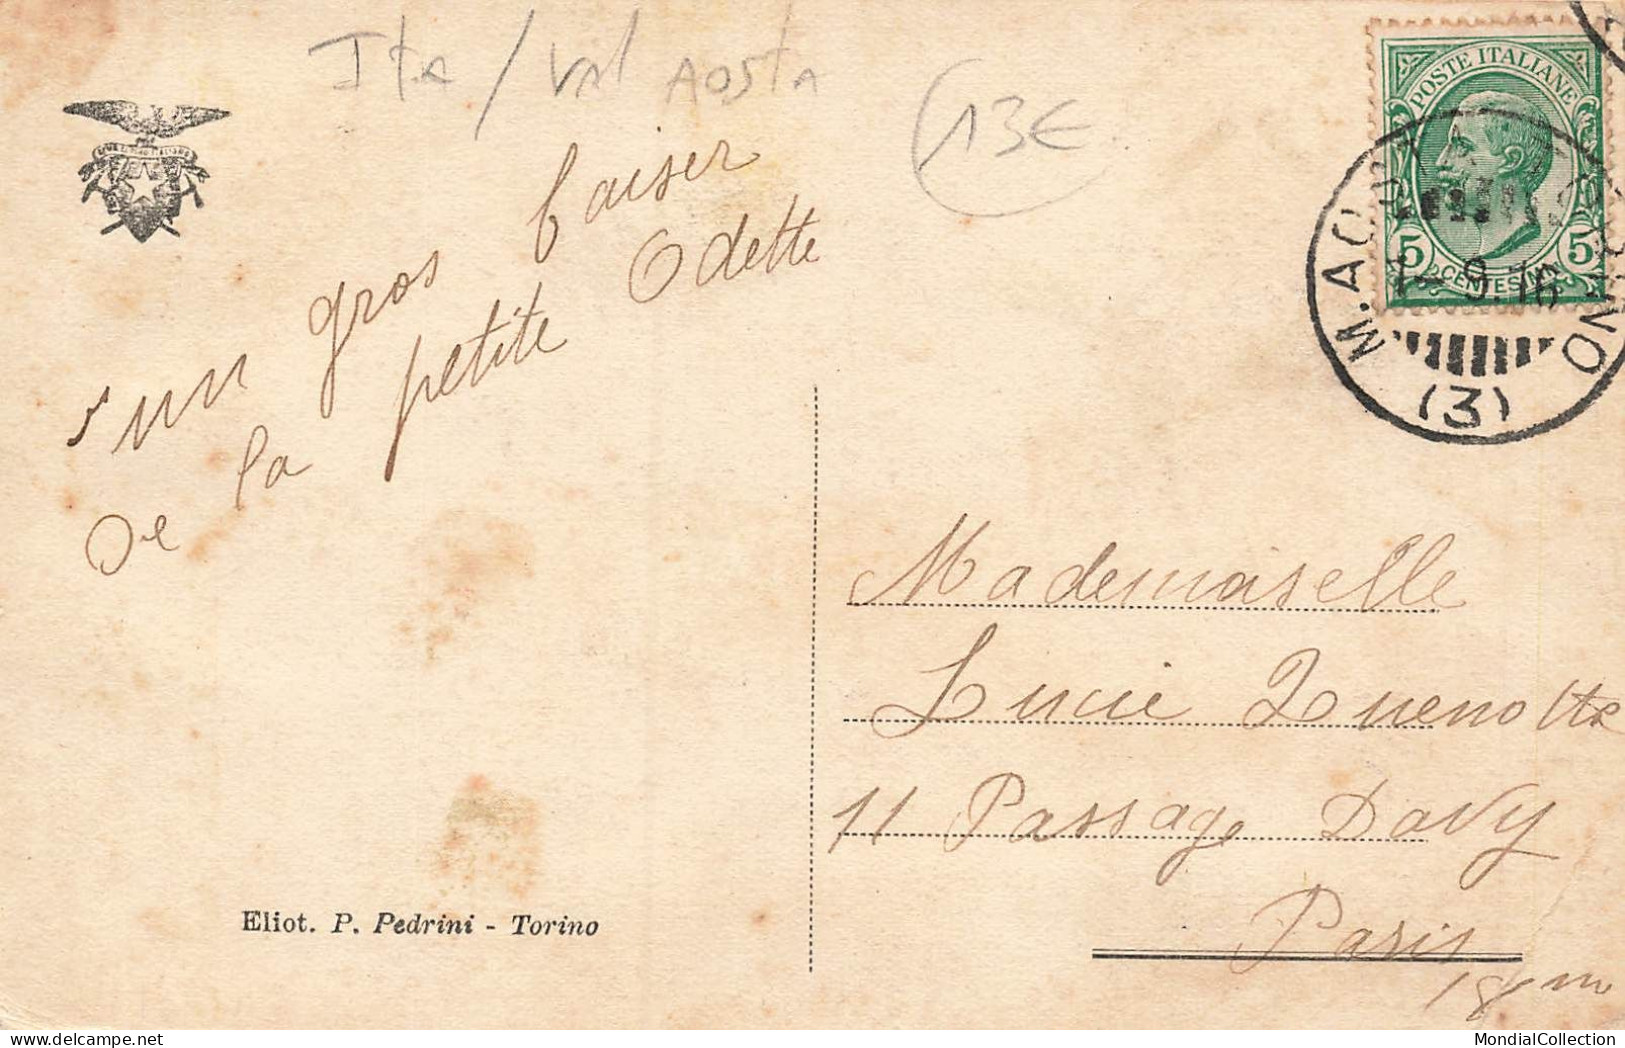 Ita / Val Aosta
13€
un gros baiser
de la petite Odette
Eliot. P. Pedrini - Torino
POSTE ITALIANE
5 5
CENTESIMI
1-9.16
(3)
Mademoiselle
Lucie Quenotte
11 Passage Davy
Paris
18me
MondialCollection